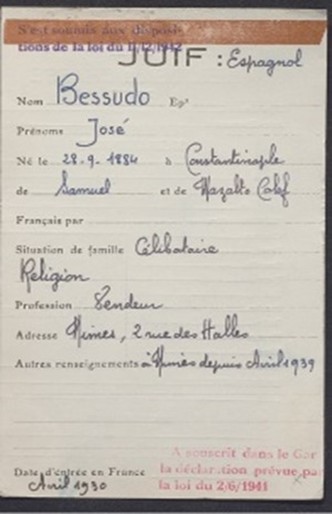 S'est soumis aux disposi-
tions de la loi du 11/12/1942
JUIF : Espagnol
Nom Bessudo Epx
Prénoms José
Né le 28.9.1884 à Constantinople
de Samuel et de Mazalto Calef
Français par
Situation de famille Célibataire
Religion
Profession Vendeur
Adresse Nimes, 2 rue des Halles
Autres renseignements à Nimes depuis Avril 1939
A souscrit dans le Gar
la déclaration prévue pa
Date d'entrée en France
la loi du 2/6/1941
Avril 1930